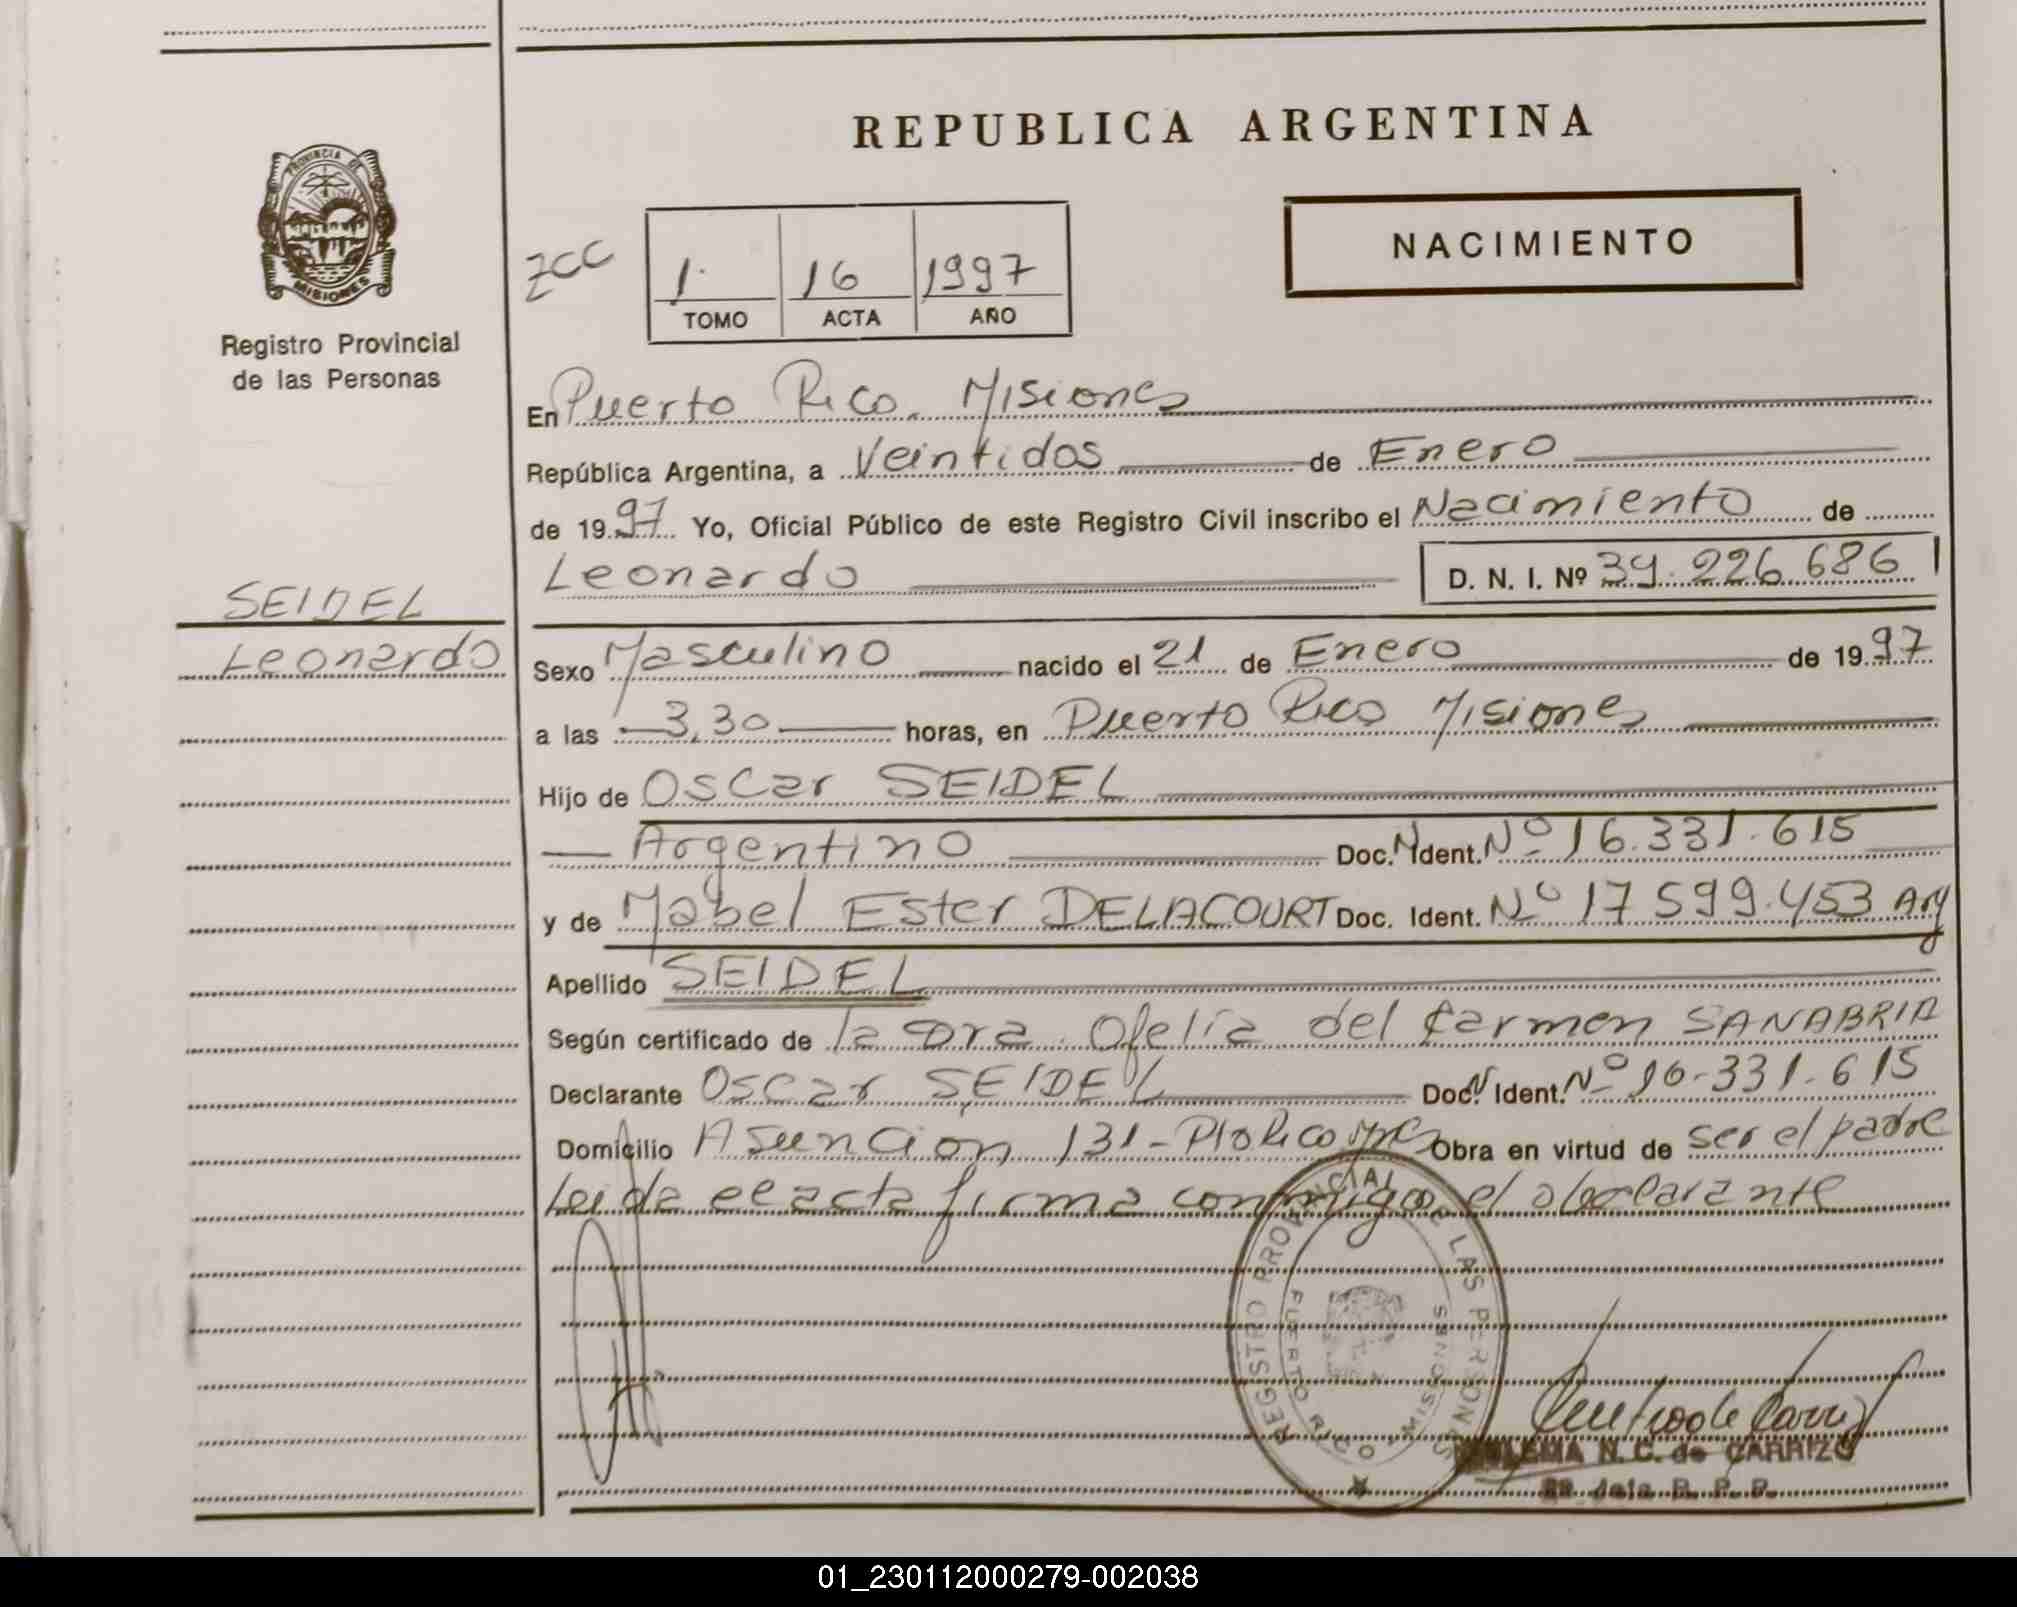 REPUBLICA ARGENTINA
PROVINCIA DE
MISIONES
Registro Provincial
de las Personas
ZCC
1 16 1997
TOMO ACTA AÑO
NACIMIENTO
En Puerto Rico. Misiones
República Argentina, a Veintidos de Enero
de 1997 Yo, Oficial Público de este Registro Civil inscribo el Nacimiento de
Leonardo D. N. I. Nº 39.226.686
SEIDEL
Leonardo
Sexo Masculino nacido el 21 de Enero de 1997
a las 3,30 horas, en Puerto Rico Misiones
Hijo de Oscar SEIDEL
Argentino Doc. N Ident. Nº 16.331.615
y de Mabel Ester DELACOURT Doc. Ident. Nº 17 599.453 Arg
Apellido SEIDEL
Según certificado de la Dra. Ofelia del Carmen SANABRIA
Declarante Oscar SEIDEL Doc. N Ident. Nº 16.331.615
Domicilio Asuncion 131 - Pto Rico Mnes Obra en virtud de ser el padre
Leida el acta firma conmigo el declarante
REGISTRO PROVINCIAL DE LAS PERSONAS
PUERTO RICO MISIONES
N. C. de CARRIZO
R. P. P.
01_230112000279-002038